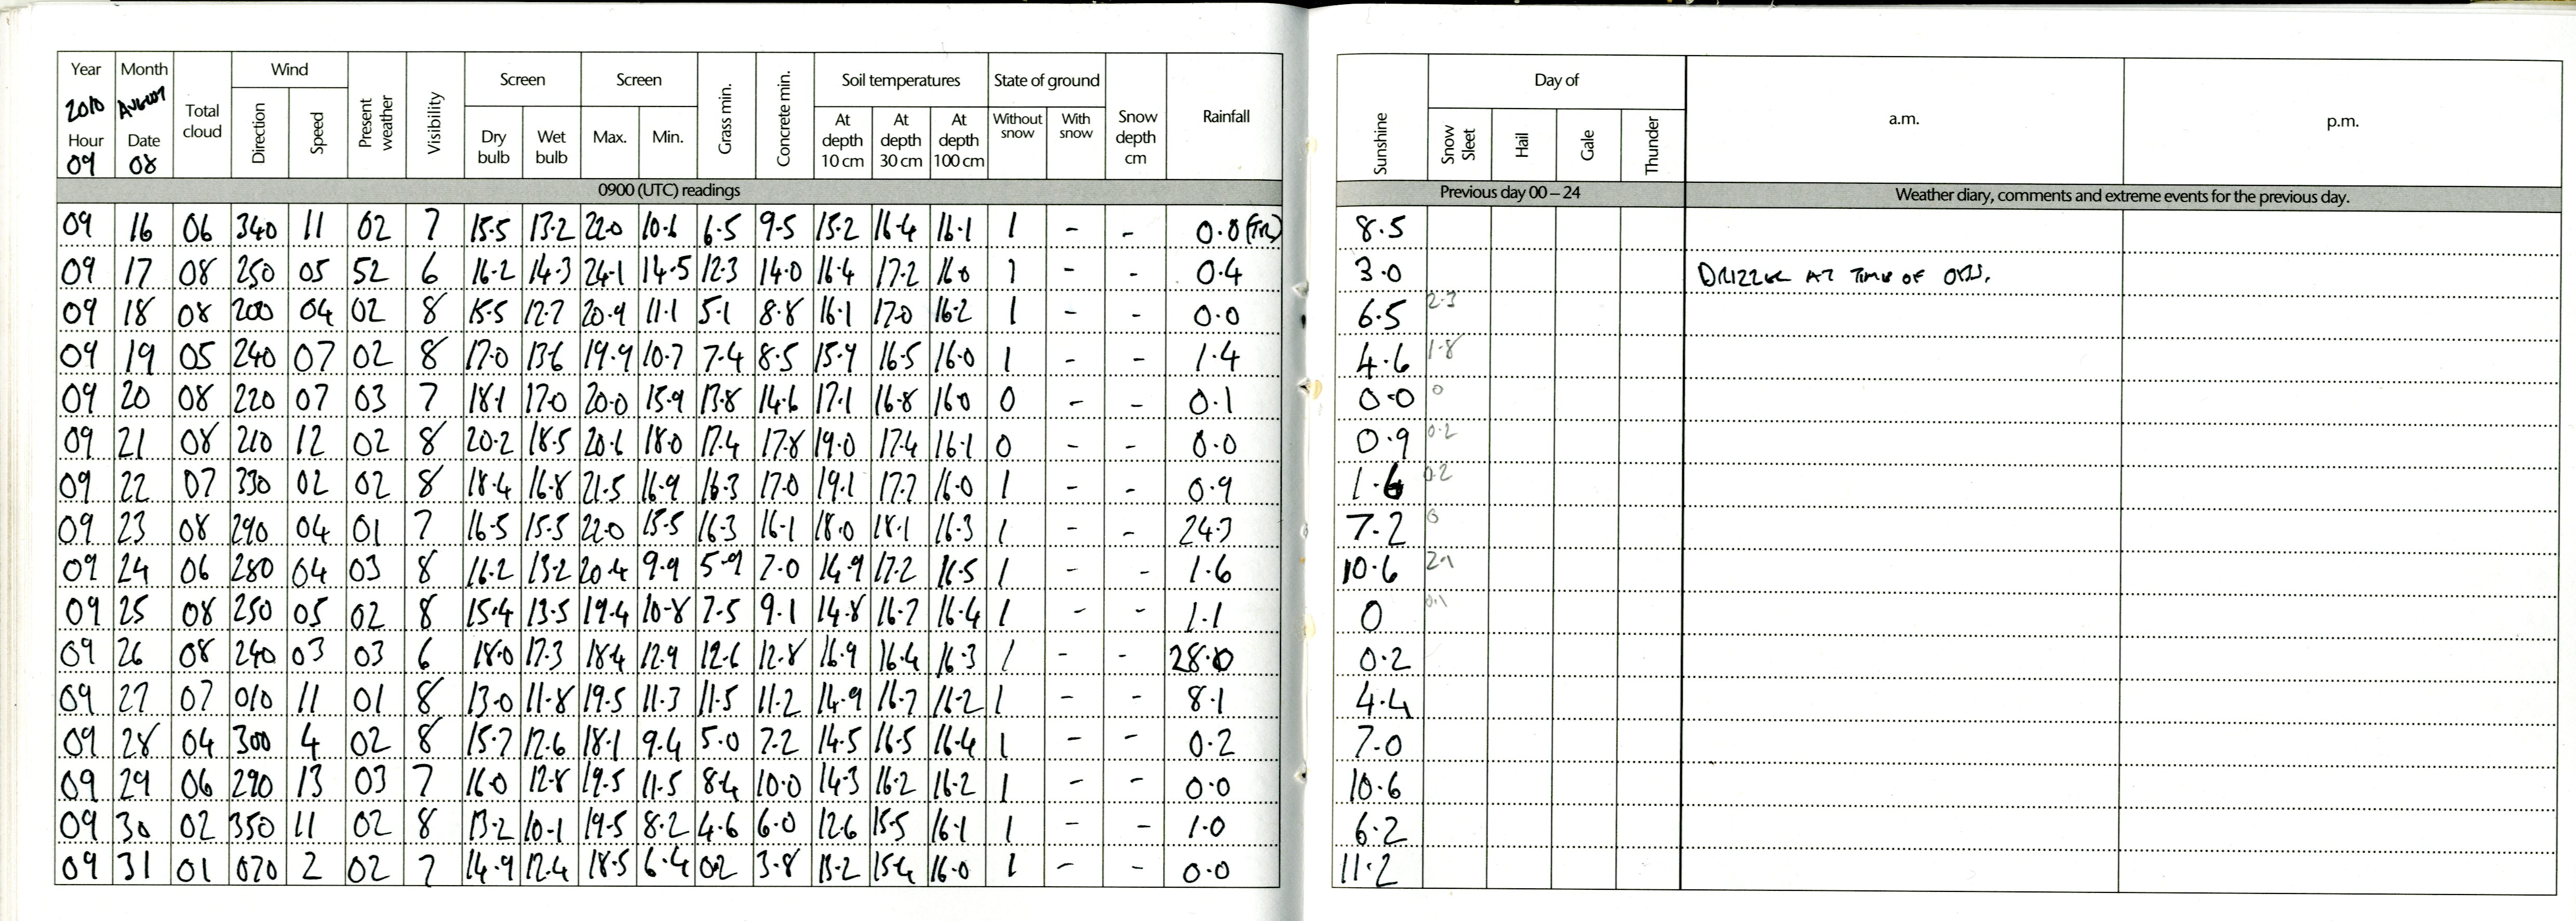 Year Month Total cloud Wind Present weather Visibility Screen Screen Grass min. Concrete min. Soil temperatures State of ground Snow depth cm Rainfall Sunshine Day of a.m. p.m.
2010 AUGUST Direction Speed Dry bulb Wet bulb Max. Min. At depth 10 cm At depth 30 cm At depth 100 cm Without snow With snow Snow Sleet Hail Gale Thunder
Hour Date
09 08
0900 (UTC) readings Previous day 00 – 24 Weather diary, comments and extreme events for the previous day.
09 16 06 340 11 02 7 15.5 13.2 22.0 10.6 6.5 9.5 15.2 16.4 16.1 1 - - 0.0 (TR) 8.5
09 17 08 250 05 52 6 16.2 14.3 24.1 14.5 12.3 14.0 16.4 17.2 16.0 1 - - 0.4 3.0 DRIZZLE AT TIME OF OBS.
09 18 08 200 04 02 8 15.5 12.7 20.9 11.1 5.1 8.8 16.1 17.0 16.2 1 - - 0.0 6.5 2.3
09 19 05 240 07 02 8 17.0 13.6 19.9 10.7 7.4 8.5 15.9 16.5 16.0 1 - - 1.4 4.6 1.8
09 20 08 220 07 03 7 18.1 17.0 20.0 15.9 13.8 14.6 17.1 16.8 16.0 0 - - 0.1 0.0 0
09 21 08 210 12 02 8 20.2 18.5 20.6 18.0 17.4 17.8 19.0 17.4 16.1 0 - - 0.0 0.9 0.2
09 22 07 330 02 02 8 18.4 16.8 21.5 16.9 16.3 17.0 19.1 17.7 16.0 1 - - 0.9 1.6 0.2
09 23 08 290 04 01 7 16.5 15.5 22.0 15.5 16.3 16.1 18.0 18.1 16.3 1 - - 24.3 7.2 0
09 24 06 280 04 03 8 16.2 13.2 20.4 9.9 5.9 7.0 14.9 17.2 16.5 1 - - 1.6 10.6
09 25 08 250 05 02 8 15.4 13.5 19.4 10.8 7.5 9.1 14.8 16.7 16.4 1 - - 1.1 0 0.1
09 26 08 240 03 03 6 18.0 17.3 18.4 12.9 12.6 12.8 16.9 16.4 16.3 1 - - 28.0 0.2
09 27 07 010 11 01 8 13.0 11.8 19.5 11.3 11.5 11.2 14.9 16.7 16.2 1 - - 8.1 4.4
09 28 04 300 4 02 8 15.7 12.6 18.1 9.4 5.0 7.2 14.5 16.5 16.4 1 - - 0.2 7.0
09 29 06 290 13 03 7 16.0 12.8 19.5 11.5 8.4 10.0 14.3 16.2 16.2 1 - - 0.0 10.6
09 30 02 350 11 02 8 13.2 10.1 19.5 8.2 4.6 6.0 12.6 15.5 16.1 1 - - 1.0 6.2
09 31 01 070 2 02 7 14.9 12.4 18.5 6.4 0.2 3.8 13.2 15.4 16.0 1 - - 0.0 11.2